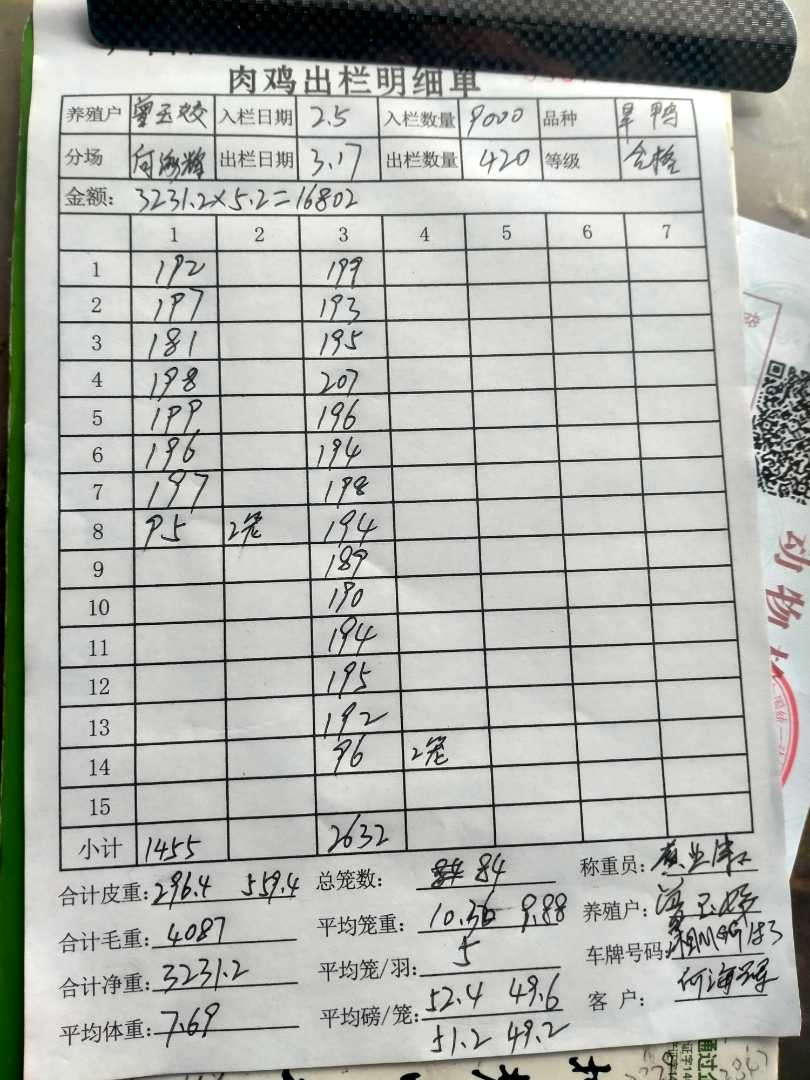 肉鸡出栏明细单
养殖户 曾玉姣 入栏日期 2.5 入栏数量 9000 品种 旱鸭
分场 何海辉 出栏日期 3.17 出栏数量 420 等级 合格
金额: 3231.2×5.2=16802
1 2 3 4 5 6 7
1 192 199
2 197 193
3 181 195
4 198 207
5 199 196
6 196 194
7 197 198
8 95 2笼 194
9 189
10 190
11 194
12 195
13 192
14 96 2笼
15
小计 1455 2632
合计皮重: 296.4 559.4 总笼数: 84 称重员:
合计毛重: 4087 平均笼重: 10.36 9.88 养殖户:
合计净重: 3231.2 平均笼/羽: 5 车牌号码:
平均体重: 7.69 平均磅/笼: 52.4 49.6 客户: 何海辉
51.2 49.2
动物